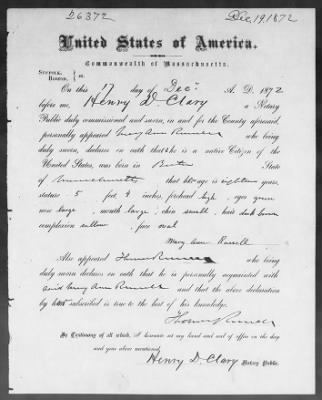 26372 Dec 19 1872
United States of America.
Commonwealth of Massachusetts.
SUFFOLK, ss.
BOSTON,
On this 17 day of Decr A. D. 1872
before me, Henry D. Clary a Notary
Public duly commissioned and sworn, in and for the County aforesaid,
personally appeared Mary Ann Russell who being
duly sworn, declares on oath that she is a native Citizen of the
United States, was born in Boston State
of Massachusetts that her age is eighteen years,
stature 5 feet, 4 inches, forehead high, eyes green
nose large, mouth large, chin small, hair dark brown
complexion sallow, face oval
Mary Ann Russell
Also appeared Thomas Russell who being
duly sworn declares on oath that he is personally acquainted with
said Mary Ann Russell and that the above declaration
by her subscribed is true to the best of his knowledge.
Thomas Russell
In Testimony of all which, I hereunto set my hand and seal of office on the day
and year above mentioned,
Henry D. Clary Notary Public.